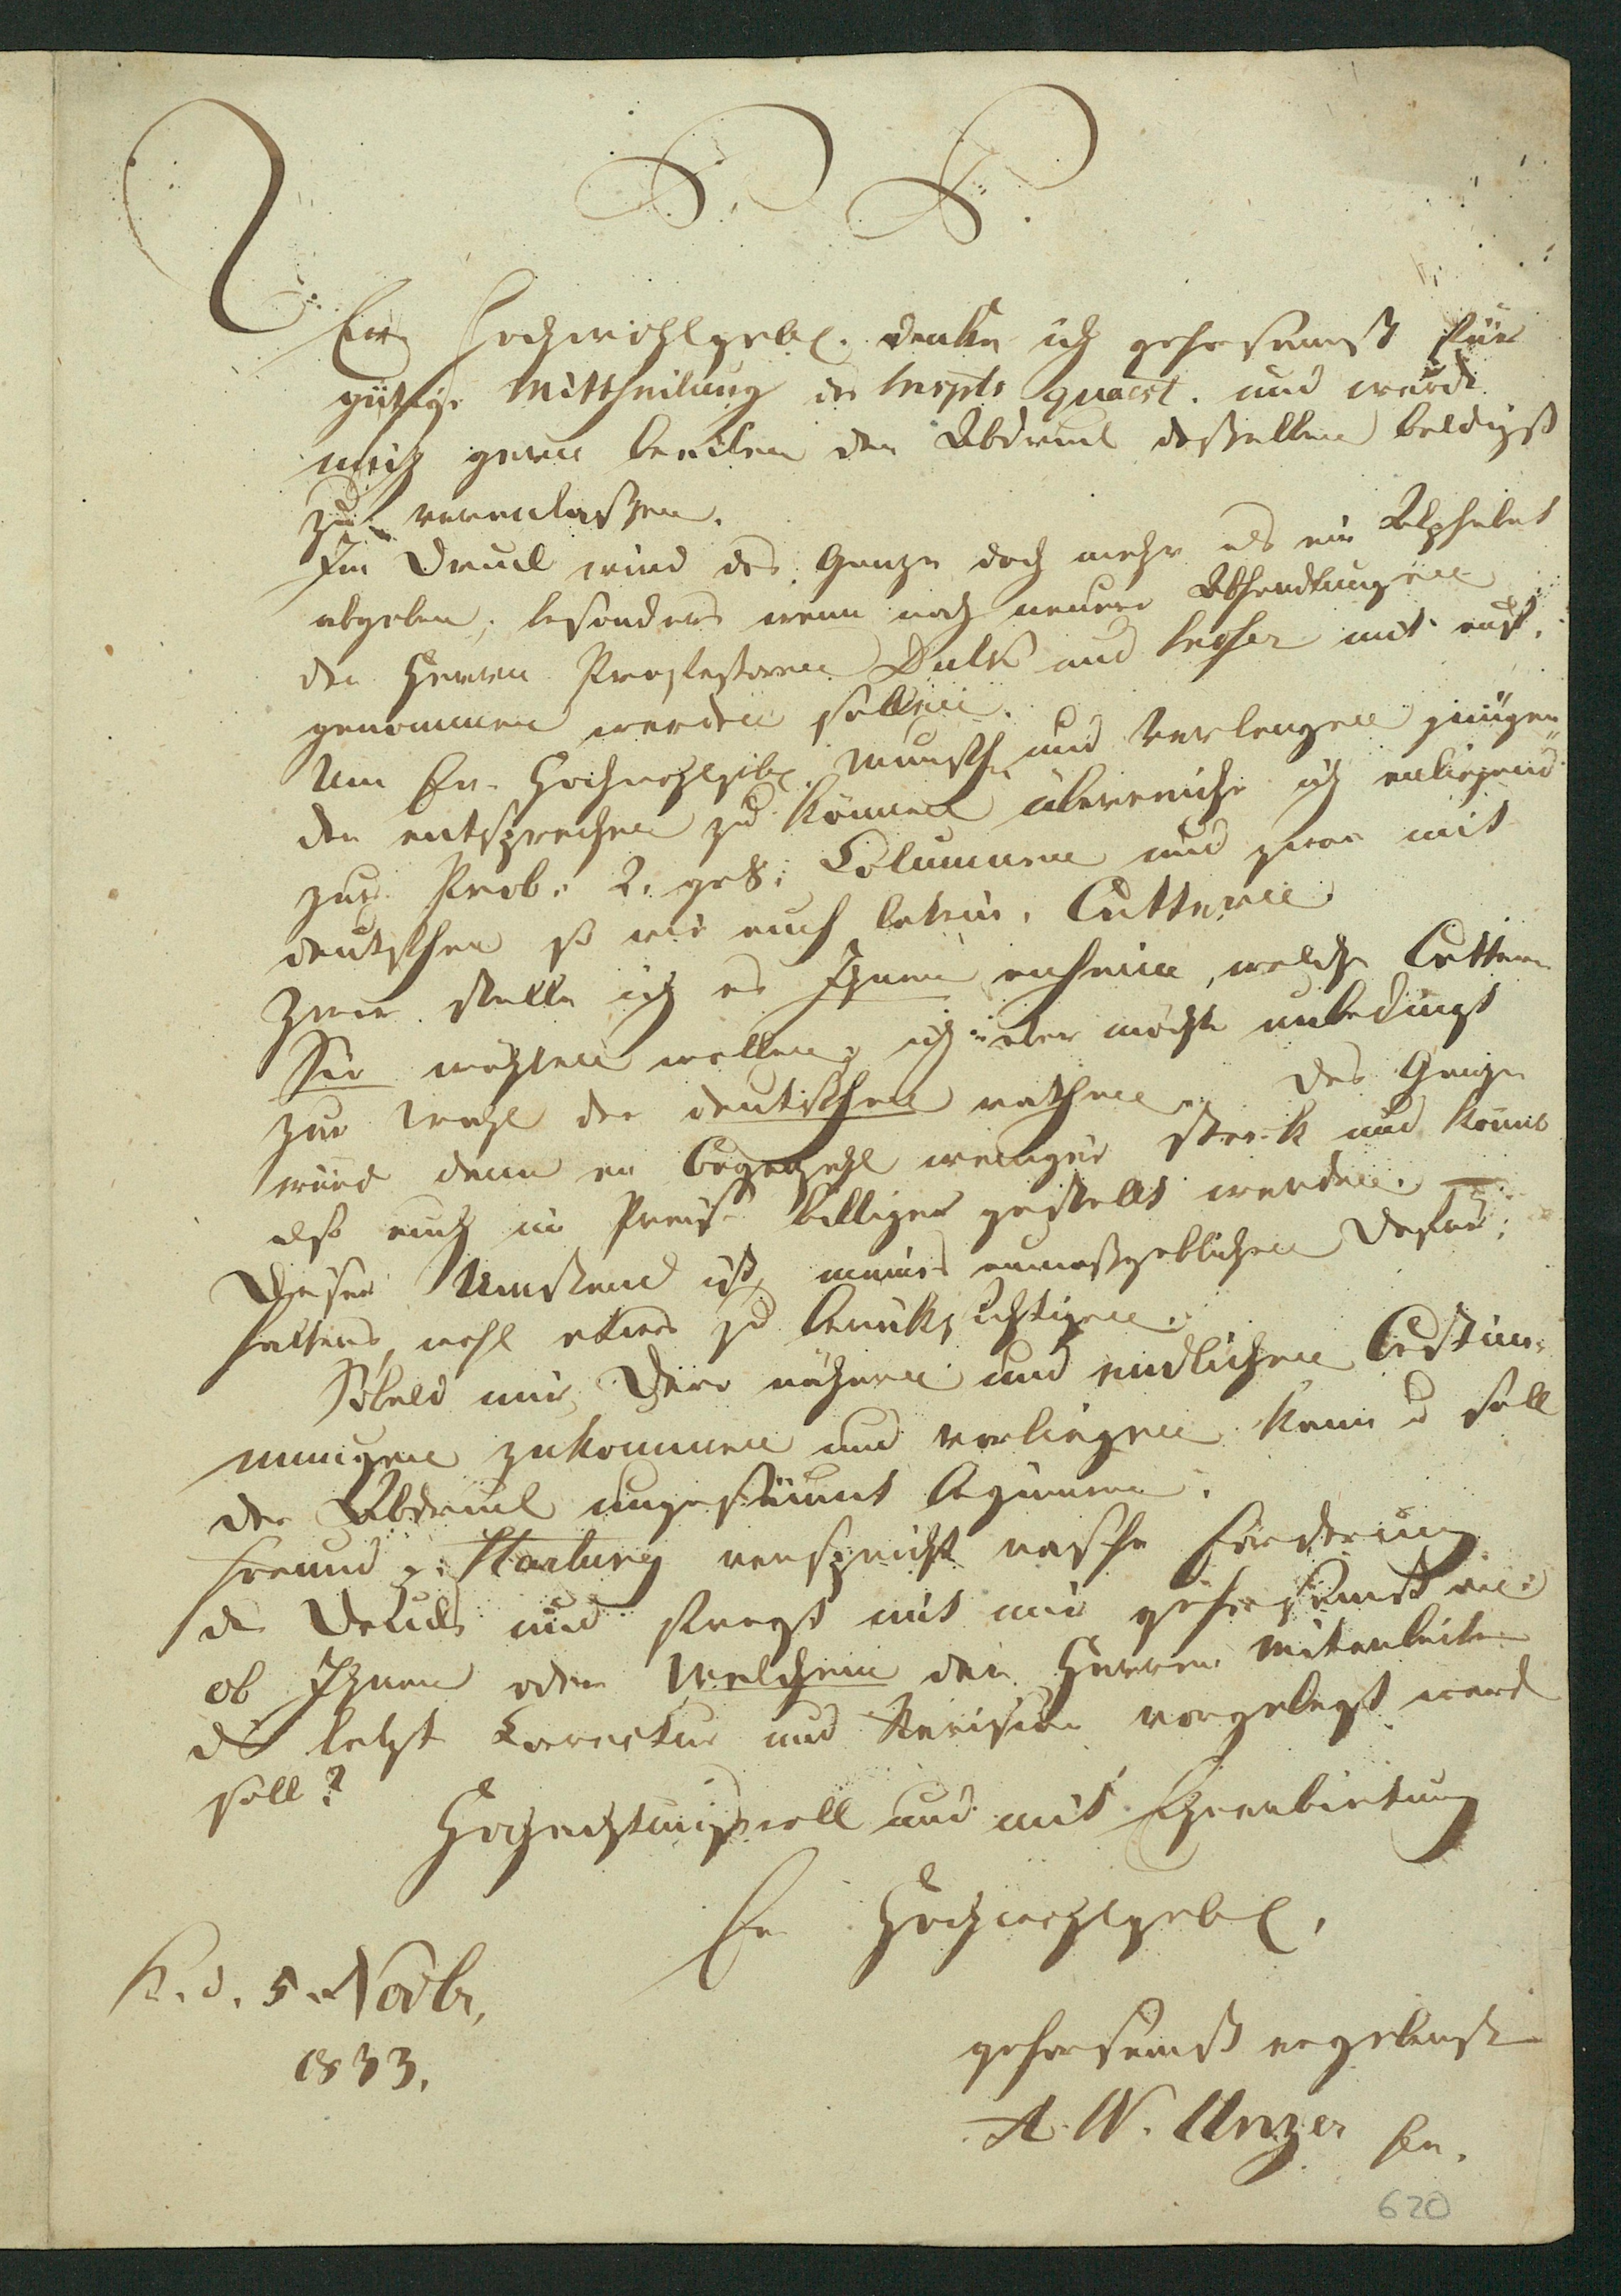 P. P.
Ew. Hochwohlgeb. danke ich gehorsamst für
gütige Mittheilung des Mspts quaest. und werde
mich gern beeilen den Abdruck desselben baldigst
zu veranlaßen.
Im Druck wird das Ganze doch mehr als ein Alphabet
abgeben, besonders wenn noch neuere Abhandlungen
der Herren Professoren Dulk und mit auf-
genommen werden sollen.
Um Ew. Hochwohlgeb. Wunsch und Verlangen genügen-
der entsprechen zu können überreiche ich anliegend
zur Prob. 2. gr 8. Columnen und zwar mit
deutschen so wie auch latein. Lettern.
Zwar stelle ich es Ihnen anheim, welche Lettern
Sie wählen wollen, ich aber möchte unbedingt
zur Wahl der deutschen rathen. Das Ganze
wird dann an Bogenzahl weniger stark und könnte
also auch im Preise billiger gestellt werden. —
Dieser Umstand ist, meines unmaßgeblichen Dafür-
haltens wohl etwas zu berücksichtigen.
Sobald mir Dero nähern und endlichen Bestim-
mungen zukommen und vorliegen kann u soll
der Abdruck ungesäumt beginnen.
Freund Hartung verspricht rasche Förderung
des Drucks und fragt mit mir gehorsamst an:
ob Ihnen oder Welchem der Herren Mitarbeiter
die letzte Correctur und Revision vorgelegt werd
soll?
Hochachtungsvoll und mit Ehrerbietung
Ew Hochwohlgeb.
K. d. 5. Novbr.
1833.
gehorsamst ergebenst
A. W. Unzer sen.
620